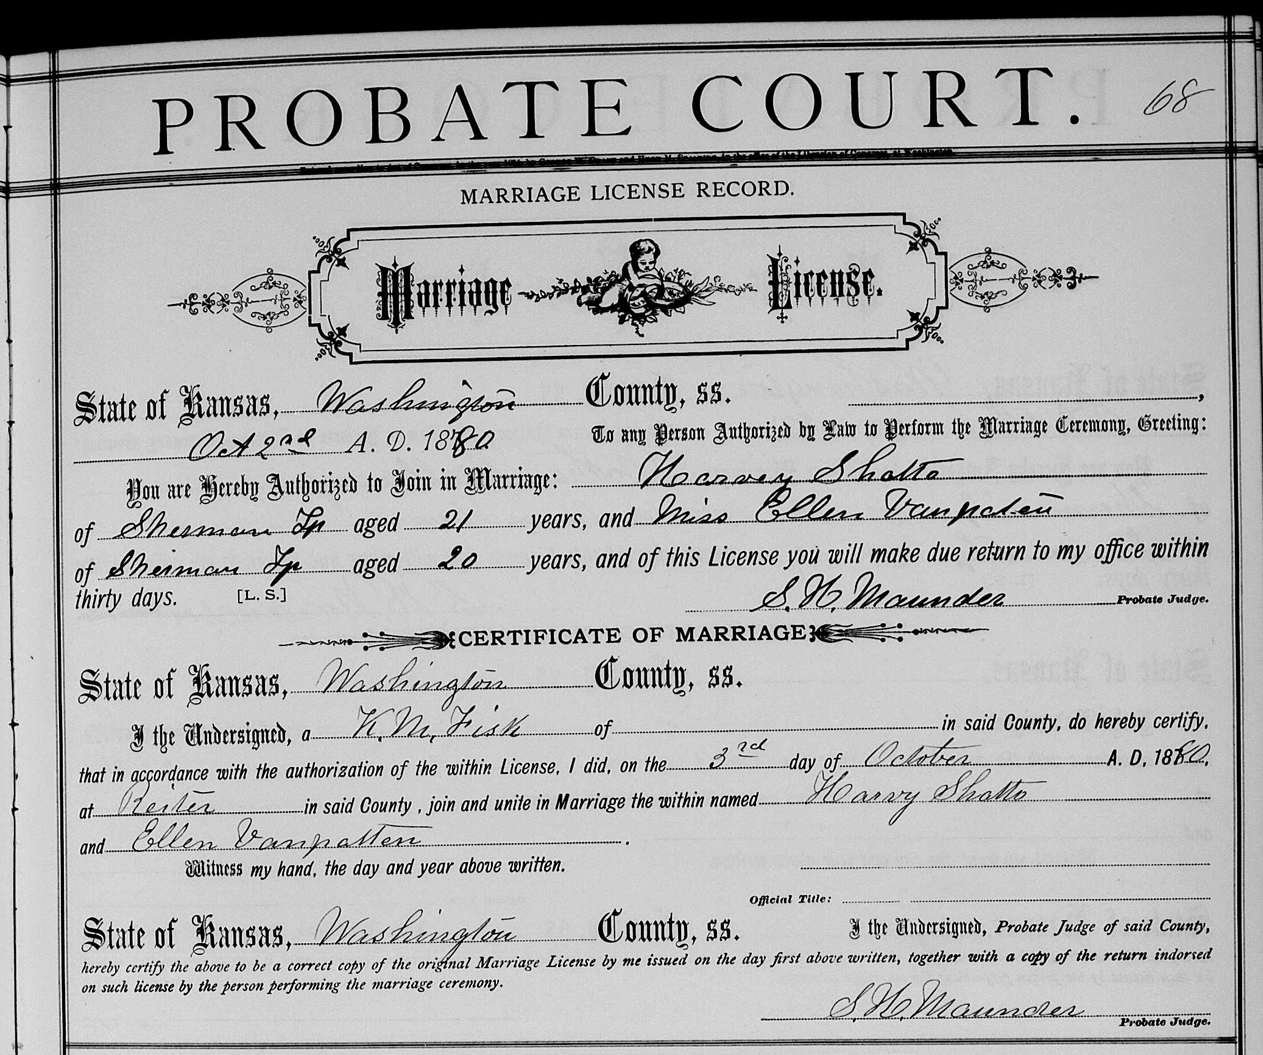 PROBATE COURT. 68
MARRIAGE LICENSE RECORD.
Marriage License.
State of Kansas, Washington County, ss.
Oct 2nd A. D. 1880 To any Person Authorized by Law to Perform the Marriage Ceremony, Greeting:
You are Hereby Authorized to Join in Marriage: Harvey Shatto
of Sherman Tp aged 21 years, and Miss Ellen Vanpatten
of Sherman Tp aged 20 years, and of this License you will make due return to my office within
thirty days. [L. S.] S. H. Maunder Probate Judge.
CERTIFICATE OF MARRIAGE
State of Kansas, Washington County, ss.
I the Undersigned, a K. M. Fisk of in said County, do hereby certify,
that in accordance with the authorization of the within License, I did, on the 3rd day of October A. D, 1880,
at Reiter in said County, join and unite in Marriage the within named Harvy Shatto
and Ellen Vanpatten.
Witness my hand, the day and year above written.
Official Title:
State of Kansas, Washington County, ss. I the Undersigned, Probate Judge of said County,
hereby certify the above to be a correct copy of the original Marriage License by me issued on the day first above written, together with a copy of the return indorsed
on such license by the person performing the marriage ceremony.
S. H. Maunder
Probate Judge.